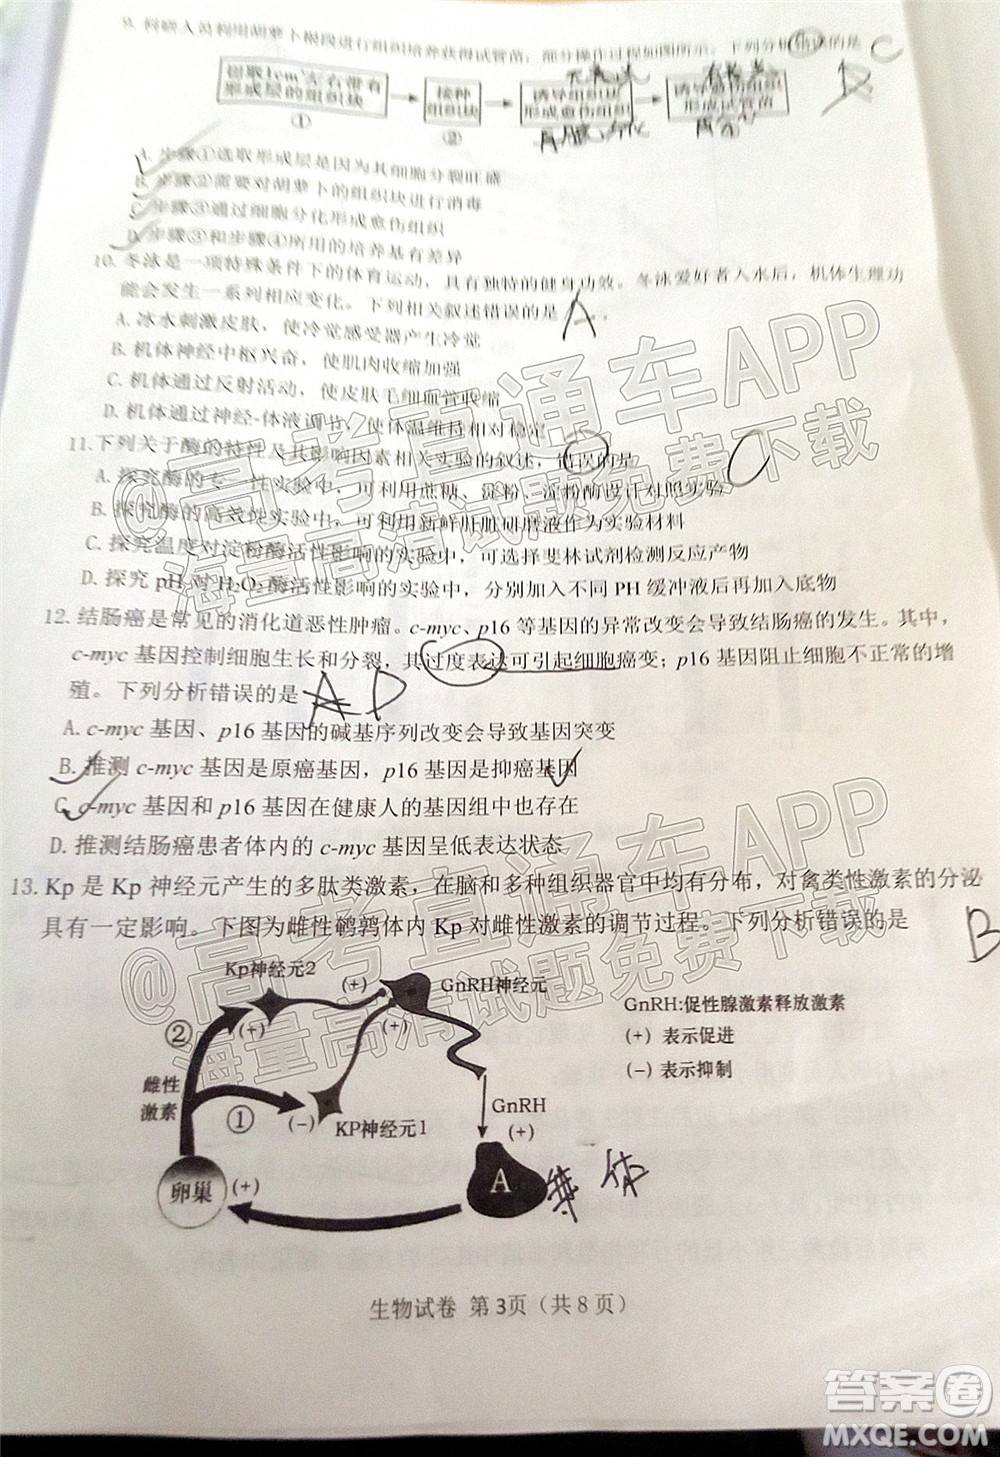 9. 科研人员利用胡萝卜根段进行组织培养获得试管苗，部分操作过程如图所示。下列分析错误的是 C
切取1cm³左右带有形成层的组织块 ①
接种组织块 ②
诱导组织块形成愈伤组织
诱导愈伤组织形成试管苗
A. 步骤①选取形成层是因为其细胞分裂旺盛
B. 步骤②需要对胡萝卜的组织块进行消毒
C. 步骤③通过细胞分化形成愈伤组织
D. 步骤③和步骤④所用的培养基有差异
10. 冬泳是一项特殊条件下的体育运动，具有独特的健身功效。冬泳爱好者入水后，机体生理功
能会发生一系列相应变化。下列相关叙述错误的是 A 。
A. 冰水刺激皮肤，使冷觉感受器产生冷觉
B. 机体神经中枢兴奋，使肌肉收缩加强
C. 机体通过反射活动，使皮肤毛细血管收缩
D. 机体通过神经-体液调节，使体温维持相对稳定
11. 下列关于酶的特性及其影响因素相关实验的叙述，错误的是
A. 探究酶的专一性实验时，可利用蔗糖、淀粉、淀粉酶设计对照实验
B. 探究酶的高效性实验时，可利用新鲜肝脏研磨液作为实验材料
C. 探究温度对淀粉酶活性影响的实验中，可选择斐林试剂检测反应产物
D. 探究 pH 对 H₂O₂ 酶活性影响的实验中，分别加入不同 PH 缓冲液后再加入底物
12. 结肠癌是常见的消化道恶性肿瘤。c-myc、p16 等基因的异常改变会导致结肠癌的发生。其中，
c-myc 基因控制细胞生长和分裂，其过度表达可引起细胞癌变；p16 基因阻止细胞不正常的增
殖。下列分析错误的是 A D
A. c-myc 基因、p16 基因的碱基序列改变会导致基因突变
B. 推测 c-myc 基因是原癌基因，p16 基因是抑癌基因
C. c-myc 基因和 p16 基因在健康人的基因组中也存在
D. 推测结肠癌患者体内的 c-myc 基因呈低表达状态
13. Kp 是 Kp 神经元产生的多肽类激素，在脑和多种组织器官中均有分布，对禽类性激素的分泌
具有一定影响。下图为雌性鹌鹑体内 Kp 对雌性激素的调节过程。下列分析错误的是 B
Kp神经元2
(+)
GnRH神经元
(+)
(+)
②
雌性激素
①
(−)
KP神经元1
GnRH
(+)
卵巢
(+)
A 垂体
GnRH:促性腺激素释放激素
(+) 表示促进
(−) 表示抑制
生物试卷 第3页（共8页）
@高考直通车APP
海量高清试题免费下载
@高考直通车APP
海量高清试题免费下载
答案圈
MXQE.COM